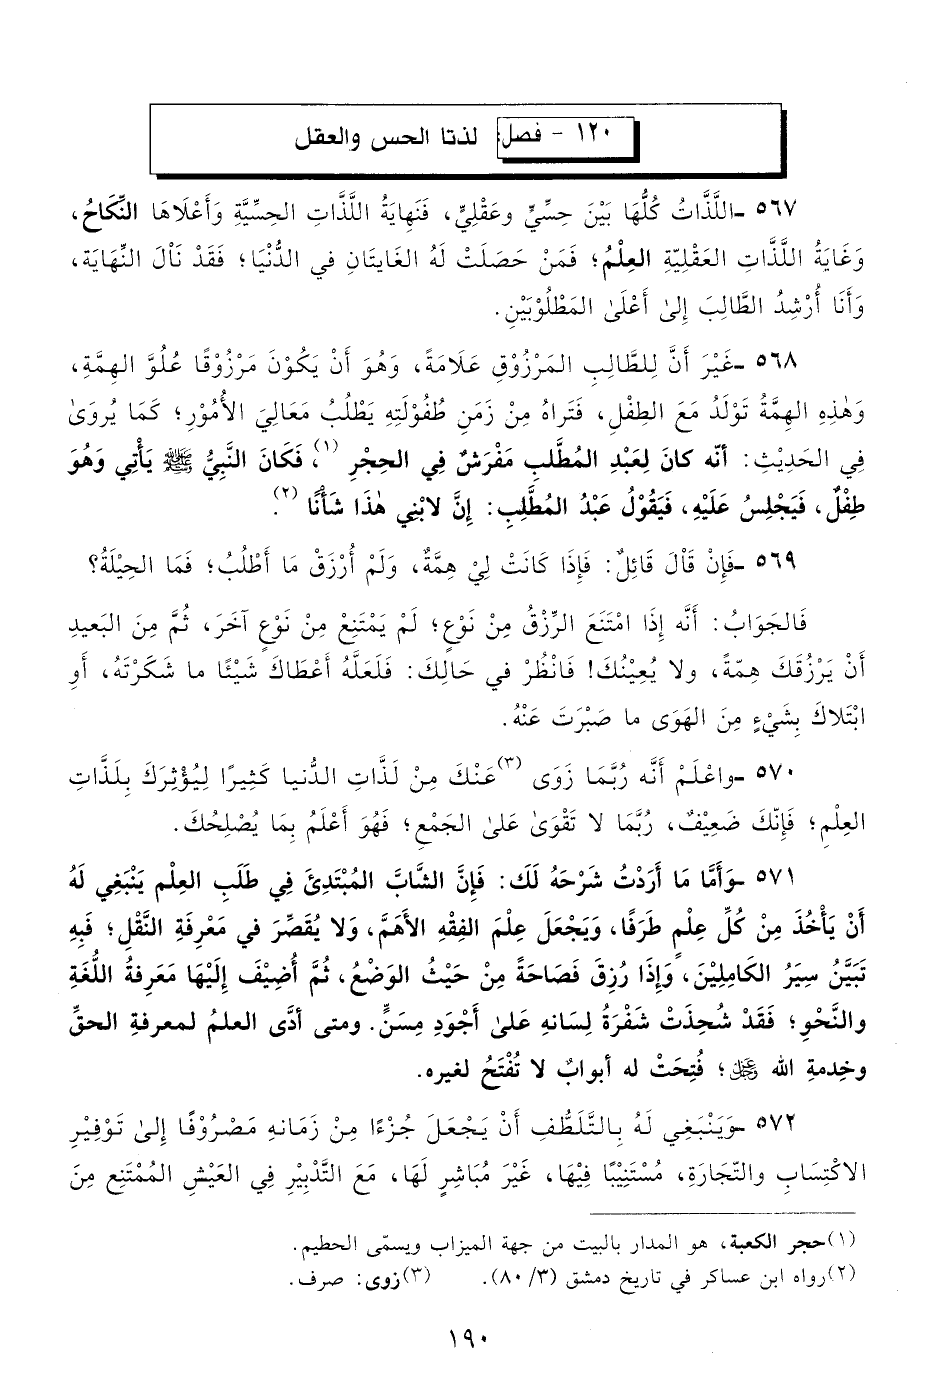 ١٢٠ - فصل: لذتا الحس والعقل
٥٦٧ -اللَّذَّاتُ كُلُّهَا بَيْنَ حِسِّيٍّ وعَقْلِيٍّ، فَنِهَايَةُ اللَّذَّاتِ الحِسِّيَّةِ وَأَعْلَاهَا النِّكَاحُ،
وَغَايَةُ اللَّذَّاتِ العَقْلِيّةِ العِلْمُ؛ فَمَنْ حَصَلَتْ لَهُ الغَايتَانِ في الدُّنْيَا؛ فَقَدْ نَاْلَ النِّهَايَة،
وَأَنَا أُرْشِدُ الطَّالِبَ إِلىٰ أَعْلَىٰ المَطْلُوْبَيْنِ.
٥٦٨ -غَيْرَ أَنَّ لِلطَّالِبِ المَرْزُوْقِ عَلَامَةً، وَهُوَ أَنْ يَكُوْنَ مَرْزُوْقًا عُلُوَّ الهِمَّةِ،
وَهٰذِهِ الهِمَّةُ تَوْلَدُ مَعَ الطِفْلِ، فَتَراهُ مِنْ زَمَنِ طُفُوْلَتِهِ يَطْلُبُ مَعَاليَ الأُمُوْرِ؛ كَمَا يُروَىٰ
فِي الحَدِيْثِ: أنّه كانَ لِعَبْدِ المُطَّلبِ مَفْرَشٌ فِي الحِجْرِ (١)، فَكَانَ النَّبِيُّ ﷺ يَأْتِي وَهُوَ
طِفْلٌ، فَيَجْلِسُ عَلَيْهِ، فَيَقُوْلُ عَبْدُ المُطَّلِبِ: إِنَّ لابْنِي هٰذَا شَأْنًا (٢).
٥٦٩ -فَإِنْ قَاْلَ قَائِلٌ: فَإِذَا كَانَتْ لِيْ هِمَّةٌ، وَلَمْ أُرْزَقْ مَا أَطْلُبُ؛ فَمَا الحِيْلَةُ؟
فَالجَوَابُ: أَنَّه إِذَا امْتَنَعَ الرِّزْقُ مِنْ نَوْعٍ؛ لَمْ يَمْتَنِعْ مِنْ نَوْعٍ آخَرَ، ثُمَّ مِنَ البَعيدِ
أَنْ يَرْزُقَكَ هِمّةً، ولا يُعِيْنُكَ! فَانْظُرْ في حَالِكَ: فَلَعَلَّهُ أَعْطَاكَ شَيْئًا ما شَكَرْتَهُ، أَوِ
ابْتَلاكَ بِشَيْءٍ مِنَ الهَوَى ما صَبْرَتَ عَنْهُ.
٥٧٠ -واعْلَمْ أَنَّه رُبَّمَا زَوَى (٣)عَنْكَ مِنْ لَذَّاتِ الدُّنيا كَثِيرًا لِيُؤْثِرَكَ بِلَذَّاتِ
العِلْمِ؛ فَإِنّكَ ضَعِيْفٌ، رُبَّمَا لا تَقْوَىٰ عَلىٰ الجَمْعِ؛ فَهُوَ أَعْلَمُ بِمَا يُصْلِحُكَ.
٥٧١ -وَأَمَّا مَا أَرَدْتُ شَرْحَهُ لَكَ: فَإِنَّ الشَّابَّ المُبْتَدِئَ فِي طَلَبِ العِلْمِ يَنْبَغِي لَهُ
أَنْ يَأْخُذَ مِنْ كُلِّ عِلْمٍ طَرَفًا، وَيَجْعَلَ عِلْمَ الفِقْهِ الأَهَمَّ، وَلا يُقَصِّرَ في مَعْرِفَةِ النَّقْلِ؛ فَبِهِ
تَبَيَّنُ سِيَرُ الكَامِلِيْنَ، وَإِذَا رُزِقَ فَصَاحَةً مِنْ حَيْثُ الوَضْعُ، ثُم أُضِيْفَ إِلَيْهَا مَعَرِفَةُ اللُّغَةِ
والنَّحْوِ؛ فَقَدْ شُحِذَتْ شَفْرَةُ لِسَانهِ عَلىٰ أَجْوَدِ مِسَنٍّ. ومتى أدَّى العلمُ لمعرفةِ الحقِّ
وخِدمةِ الله عز وجل؛ فُتِحَتْ له أبوابٌ لا تُفْتَحُ لغيره.
٥٧٢ -وَيَنْبَغِي لَهُ بِالتَّلَطُّفِ أَنْ يَجْعَلَ جُزْءًا مِنْ زَمَانهِ مَصْرُوْفًا إِلىٰ تَوْفِيْرِ
الاكْتِسَابِ والتّجَارَةِ، مُسْتَنِيْبًا فِيْهَا، غَيْرَ مُبَاشِرٍ لَهَا، مَعَ التَّدْبِيْرِ فِي العَيْشِ المُمْتَنِعِ مِنَ
(١)حجر الكعبة، هو المدار بالبيت من جهة الميزاب ويسمّى الحطيم.
(٢)رواه ابن عساكر في تاريخ دمشق (٣/ ٨٠). (٣)زوى: صرف.
١٩٠